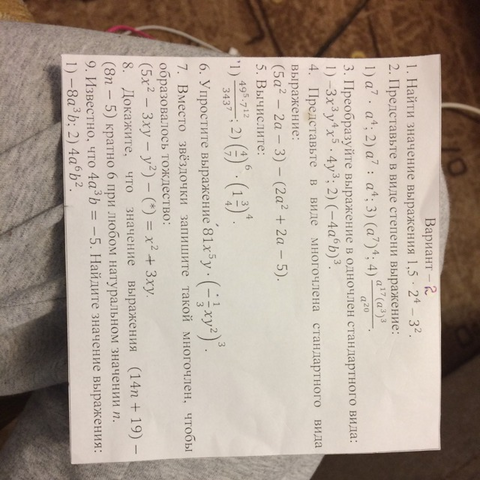 Вариант – 2
1. Найти значение выражения 1,5 · 2⁴ − 3².
2. Представьте в виде степени выражение:
1) a⁷ · a⁴; 2) a⁷ : a⁴; 3) (a⁷)⁴; 4) a¹⁷(a³)³/a²⁰.
3. Преобразуйте выражение в одночлен стандартного вида:
1) −3x³y⁴x⁵ · 4y³; 2) (−4a⁶b)³.
4. Представьте в виде многочлена стандартного вида
выражение:
(5a² − 2a − 3) − (2a² + 2a − 5).
5. Вычислите:
1) 49⁵·7¹²/343⁷; 2) (4/7)⁶ · (1 3/4)⁴
6. Упростите выражение 81x⁵y · (−1/3 xy²)³.
7. Вместо звёздочки запишите такой многочлен, чтобы
образовалось тождество:
(5x² − 3xy − y²) − (*) = x² + 3xy.
8. Докажите, что значение выражения (14n + 19) −
(8n − 5) кратно 6 при любом натуральном значении n.
9. Известно, что 4a³b = −5. Найдите значение выражения:
1) −8a³b; 2) 4a⁶b².